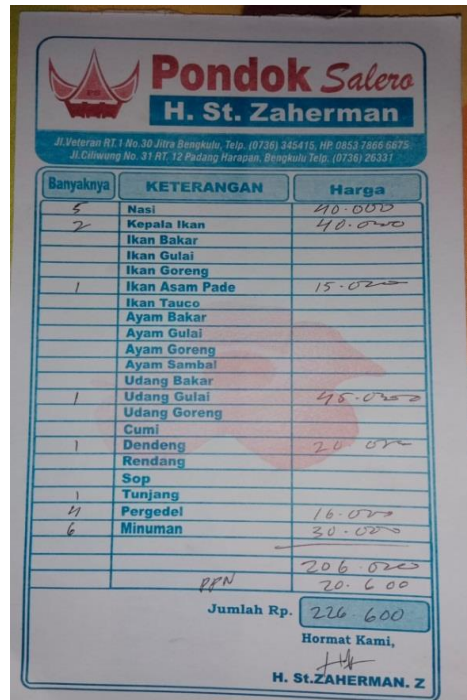 PS
Pondok Salero
H. St. Zaherman
Jl.Veteran RT.1 No.30 Jitra Bengkulu, Telp. (0736) 345415, HP. 0853 7866 6675
Jl.Ciliwung No. 31 RT. 12 Padang Harapan, Bengkulu Telp. (0736) 26331
Banyaknya KETERANGAN Harga
5 Nasi 40.000
2 Kepala Ikan 40.000
Ikan Bakar
Ikan Gulai
Ikan Goreng
1 Ikan Asam Pade 15.000
Ikan Tauco
Ayam Bakar
Ayam Gulai
Ayam Goreng
Ayam Sambal
Udang Bakar
1 Udang Gulai 45.000
Udang Goreng
Cumi
1 Dendeng 20.000
Rendang
Sop
1 Tunjang
4 Pergedel 16.000
6 Minuman 30.000
206.000
PPN 20.600
Jumlah Rp. 226.600
Hormat Kami,
H. St.ZAHERMAN. Z